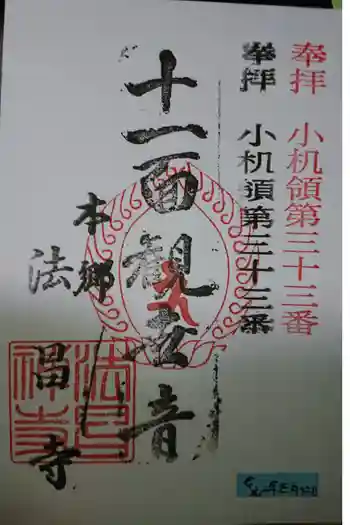 奉拝 小机領第三十三番
奉拝 小机領第三十三番
十一面観世音
本郷
法昌寺